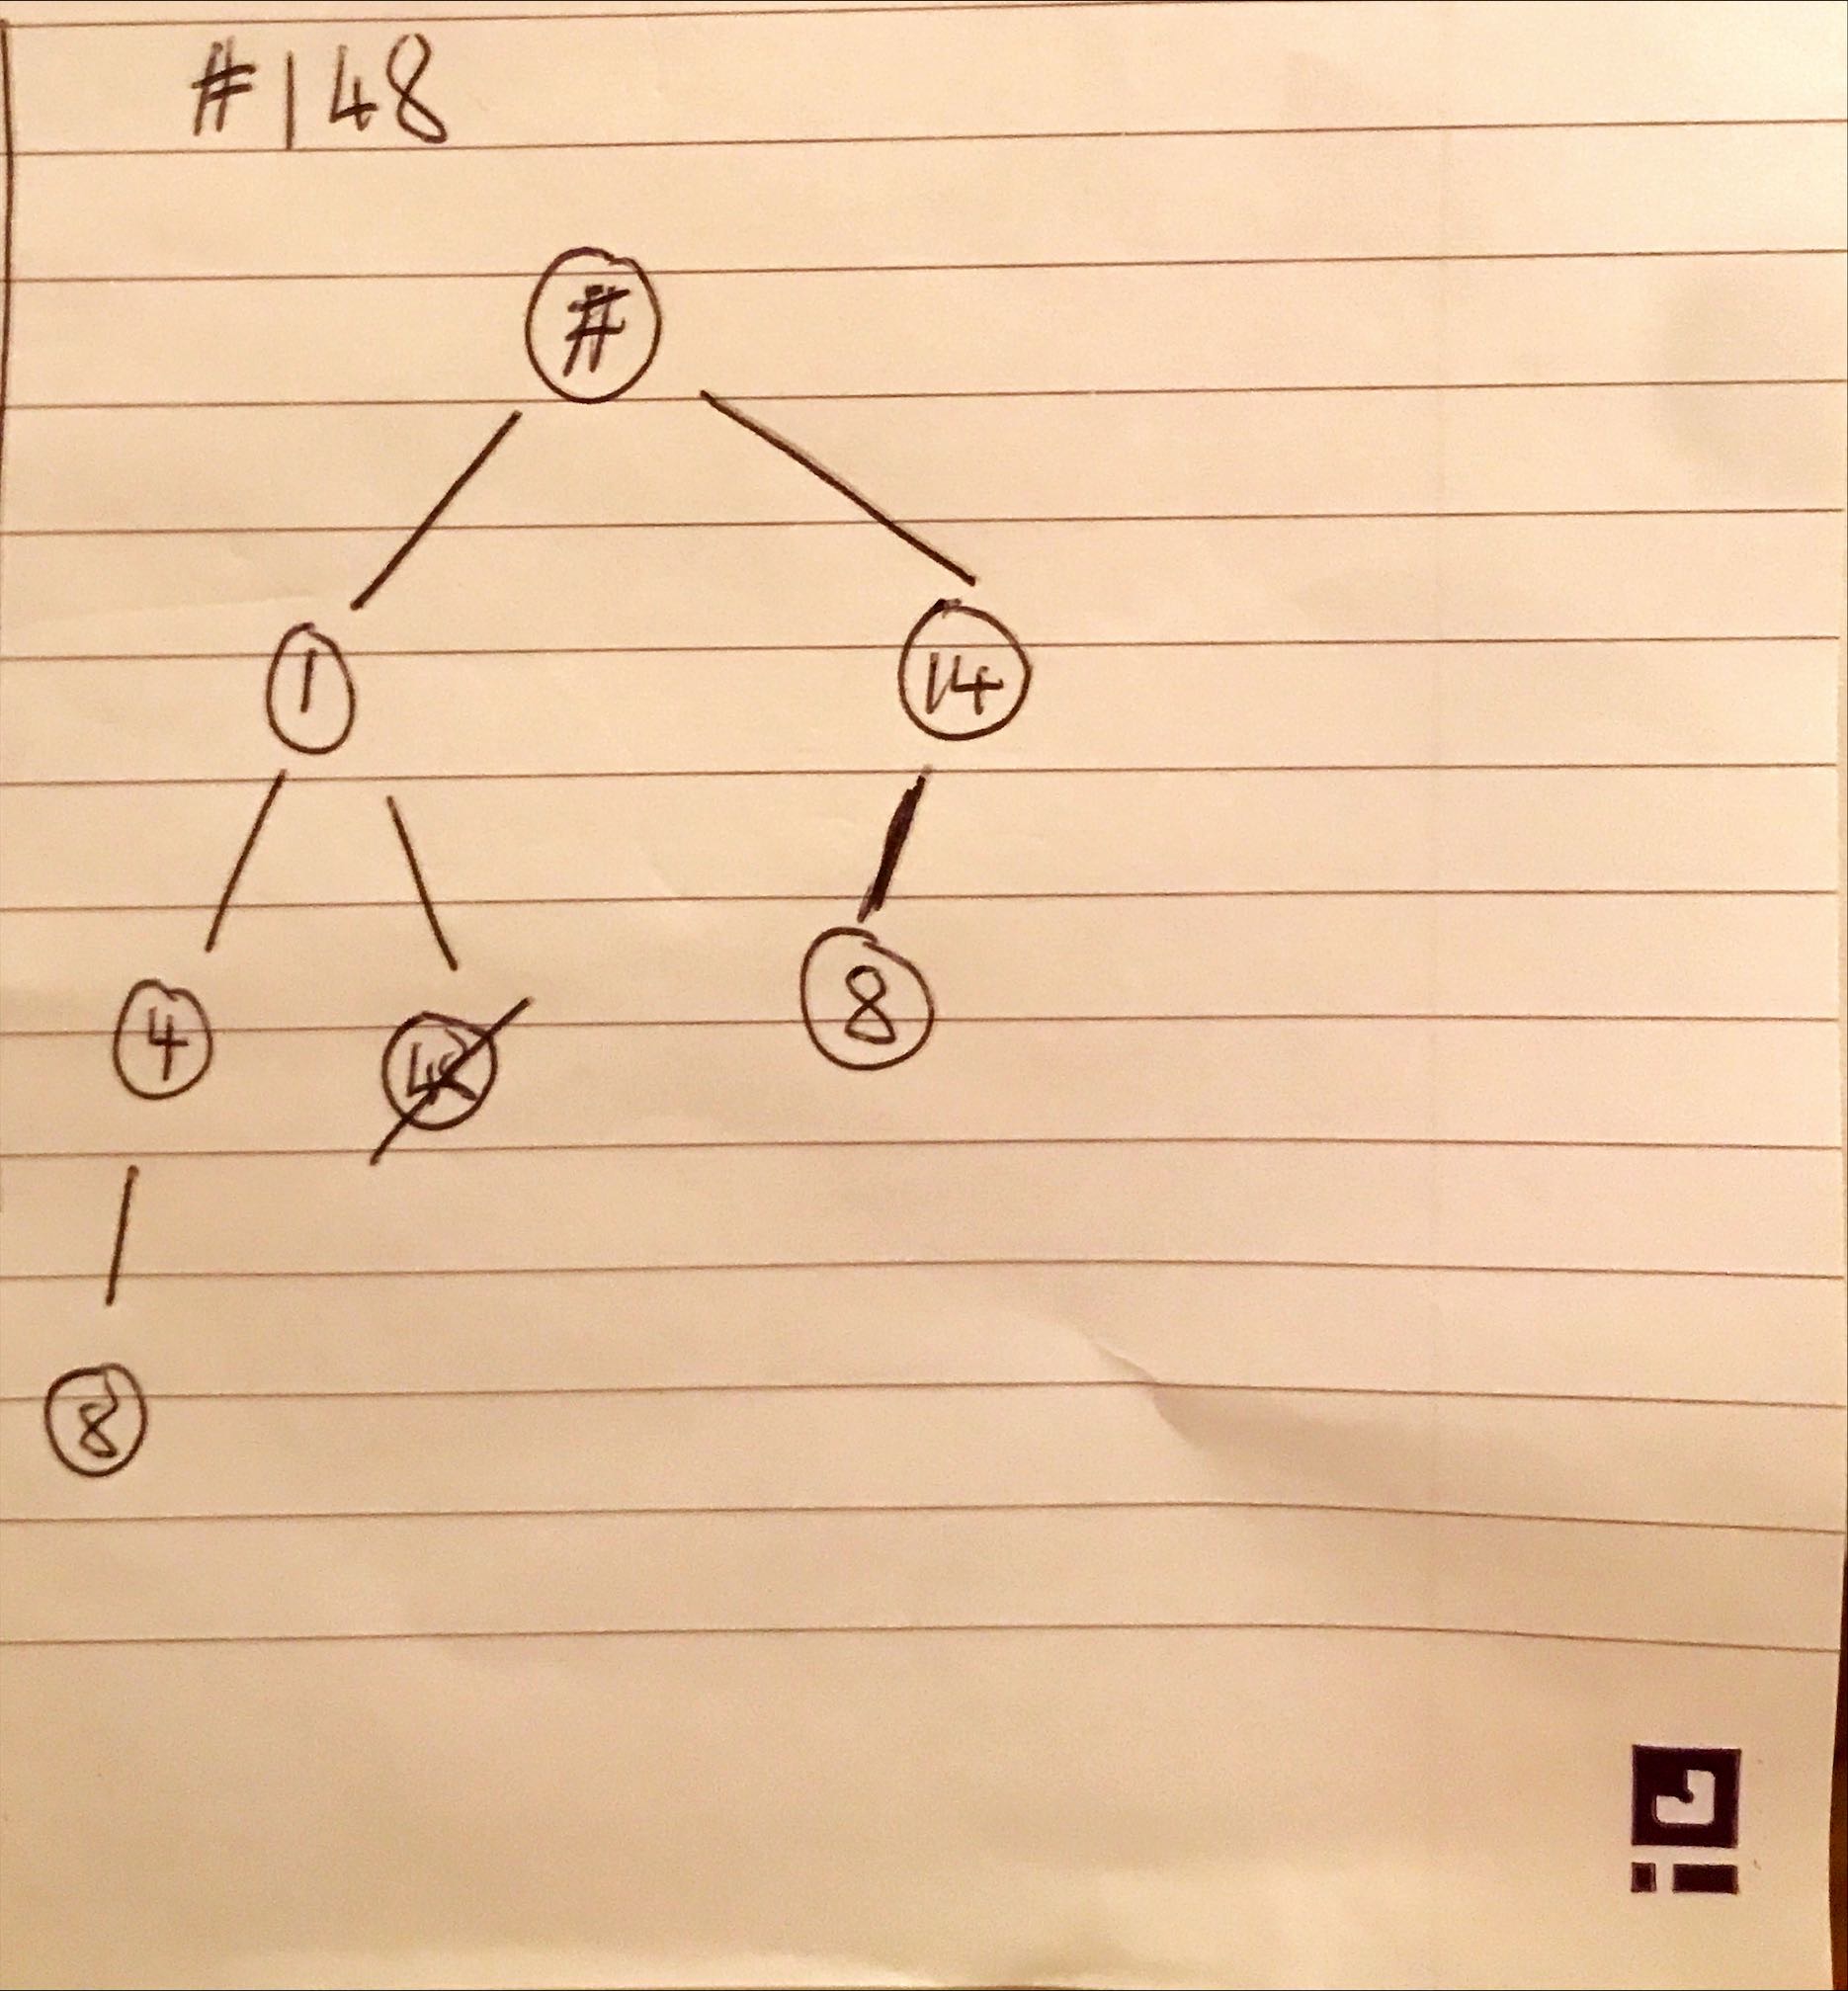 #148
#
1 14
4 48 8
8